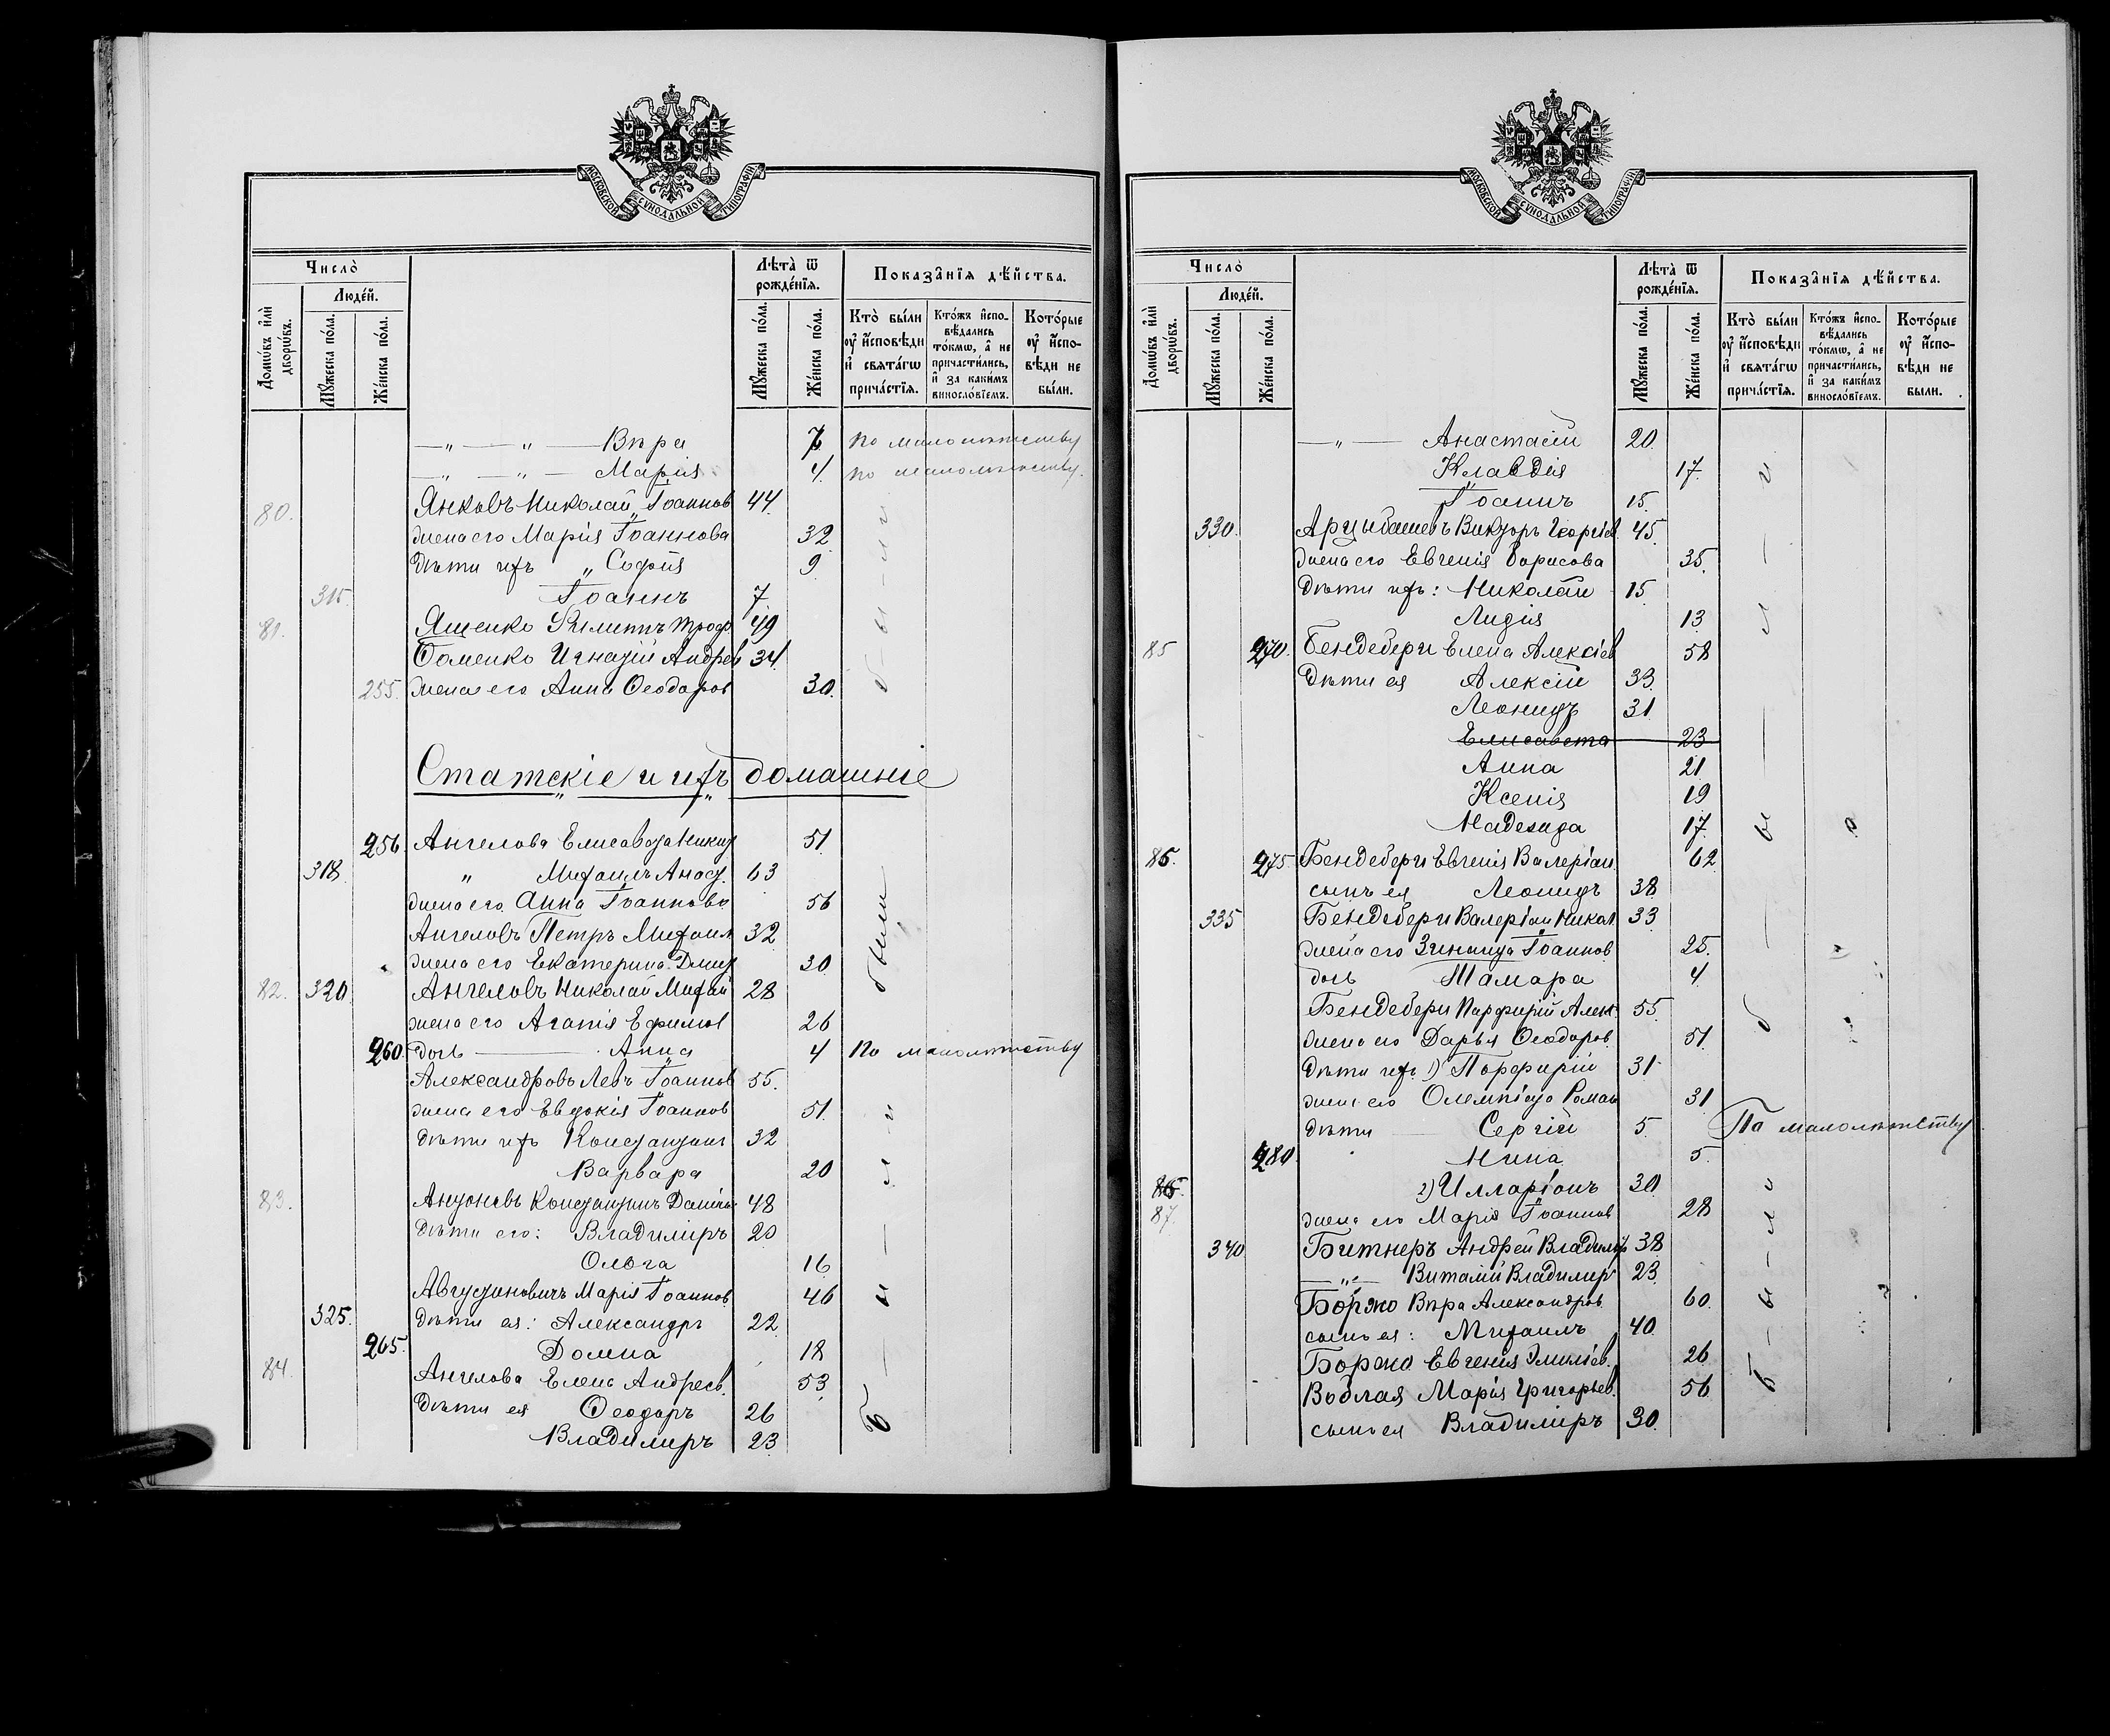 МОСКОВСКОЙ СУНОДАЛЬНОЙ ТИПОГРАФІИ
Число̀
Люде́й.
Домѡ́въ и҆лѝ дворѡ́въ.
Мꙋ́жеска по́ла.
Же́нска по́ла.
Лѣта̀ ѿ рожде́нїѧ.
Мꙋ́жеска по́ла.
Же́нска по́ла.
Показа̑нїѧ дѣ́йства.
Кто̀ бы́ли ᲂу҆ и҆́сповѣди и҆ свѧта́гѡ прича́стїѧ.
Кто́жъ и҆спо-вѣ́дались то́кмѡ, а҆ не причасти́лись, и҆ за каки́мъ виносло́вїемъ.
Кото́рые ᲂу҆ и҆́спо-вѣди не бы́ли.
—„— „ — Вѣра 7 по малолѣтству
—„— „ — Марія 4. по малолѣтству.
80. Янковъ Николай Іоаннов 44.
жена его Марія Іоаннова 32
дѣти ихъ „ Софія 9
315. Іоаннъ 7
81. Ященко Филиппъ Троф. 49
Фоменко Игнатій Андрев 34.
255. жена его Анна Ѳеодоров 30.
Статскіе и ихъ домашніе
256. Ангелова Елисавета Никит 51.
318. „ Михаилъ Анаст. 63
жена его Анна Іоаннова 56
Ангеловъ Петръ Михаил 32
жена его Екатерина Дмит 30
были
82. 320. Ангеловъ Николай Михаи 28
жена его Агапія Ефимов 26
260. дочь — Анна 4 По малолѣтству
Александровъ Левъ Іоаннов 55.
жена его Евдокія Іоаннов 51.
дѣти ихъ Константин 32
Варвара 20
83. Антоновъ Константинъ Даніил 48
дѣти его: Владиміръ 20
Ольга 16
Августиновичъ Марія Іоаннов. 46
325. дѣти ея: Александръ 22
265. Домна 18
84. Ангелова Елена Андреев. 53
дѣти ея Ѳеодоръ 26
Владимиръ 23
б — ы — л — и
МОСКОВСКОЙ СУНОДАЛЬНОЙ ТИПОГРАФІИ
Число̀
Люде́й.
Домѡ́въ и҆лѝ дворѡ́въ.
Мꙋ́жеска по́ла.
Же́нска по́ла.
Лѣта̀ ѿ рожде́нїѧ.
Мꙋ́жеска по́ла.
Же́нска по́ла.
Показа̑нїѧ дѣ́йства.
Кто̀ бы́ли ᲂу҆ и҆́сповѣди и҆ свѧта́гѡ прича́стїѧ.
Кто́жъ и҆спо-вѣ́дались то́кмѡ, а҆ не причасти́лись, и҆ за каки́мъ виносло́вїемъ.
Кото́рые ᲂу҆ и҆́спо-вѣди не бы́ли.
—„— Анастасій 20.
Клавдія 17.
Іоаннъ 15.
330. Арцыбашевъ Викторъ Георгіев. 45.
жена его Евгенія Борисова 35.
дѣти ихъ: Николай 15.
Лидія 13
85 270. Бендебери Елена Алексіев 58
дѣти ея Алексій 33.
Леонидъ 31.
Елисавета 23
Анна 21
Ксенія 19
Надежда 17.
86. 275. Бендебери Евгенія Валеріан. 62
сынъ ея Леонидъ 38
335 Бендебери Валеріан Никол 33
жена его Зинаида Іоаннов 25.
дочь Тамара 4
Бендебери Парфирій Алек. 55.
жена его Дарья Ѳеодоров. 51.
дѣти ихъ 1) Порфирій 31.
жена его Олимпіада Роман 31
дѣти — Сергій 5. По малолѣтству
280. Нина 5.
2) Илларіонъ 30
87. жена его Марія Іоаннов 28
340 Битнеръ Андрей Владимір 38.
—„— Виталій Владимир 23.
Боржо Вѣра Александров. 60.
сынъ ея: Михаилъ 40.
Боржо Евгенія Эмиліев. 26
Воблая Марія Григорьев. 56
сынъ ея Владиміръ 30.
б — ы — л — и